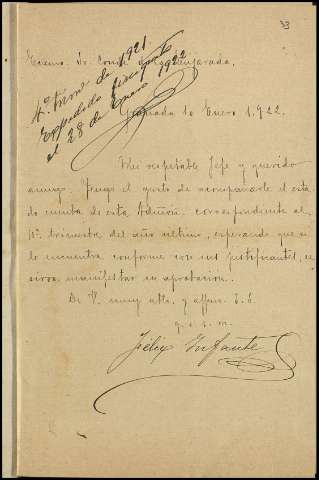 33
Excmo. Sr. Conde de Benjarada.
4º Trim. de 1921
Expedido finiquito
al 28 de Enero 1922
Granada 10 Enero 1.922.
Mi respetable Jefe y querido
amigo: Tengo el gusto de acompañarle el esta
do cuenta de esta Admón. correspondiente al
4º trimestre del año último, esperando que si
lo encuentra conforme con sus justificantes, se
sirva manifestar su aprobación.
De V. muy atto. y affmo. S. S.
q. e. s. m.
Félix Infante